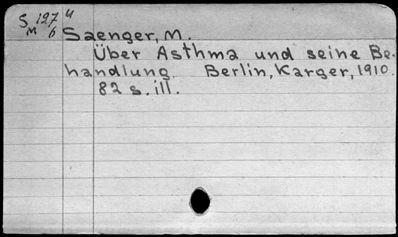 S 127 u
M 6
Saenger, M.
Über Asthma und seine Be-
handlung. Berlin, Karger, 1910.
82 s. ill.